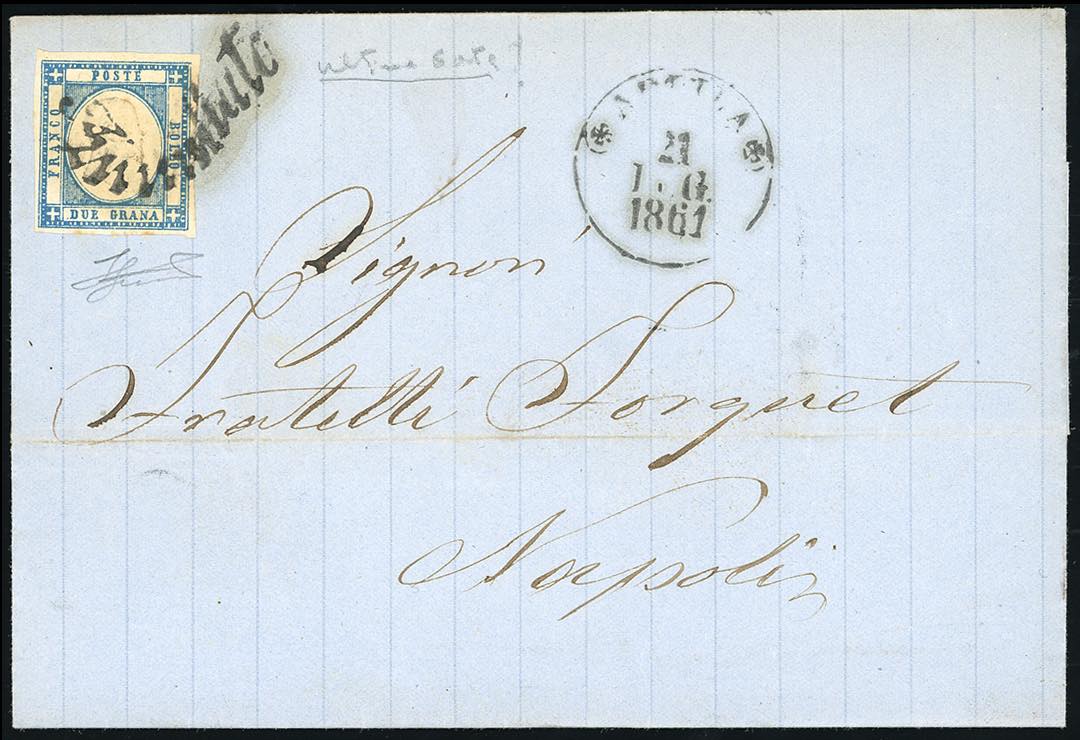 POSTE
FRANCO
BOLLO
DUE GRANA
Annullato
ultima data
21
LUG
1861
Signori
Fratelli Forquet
Napoli